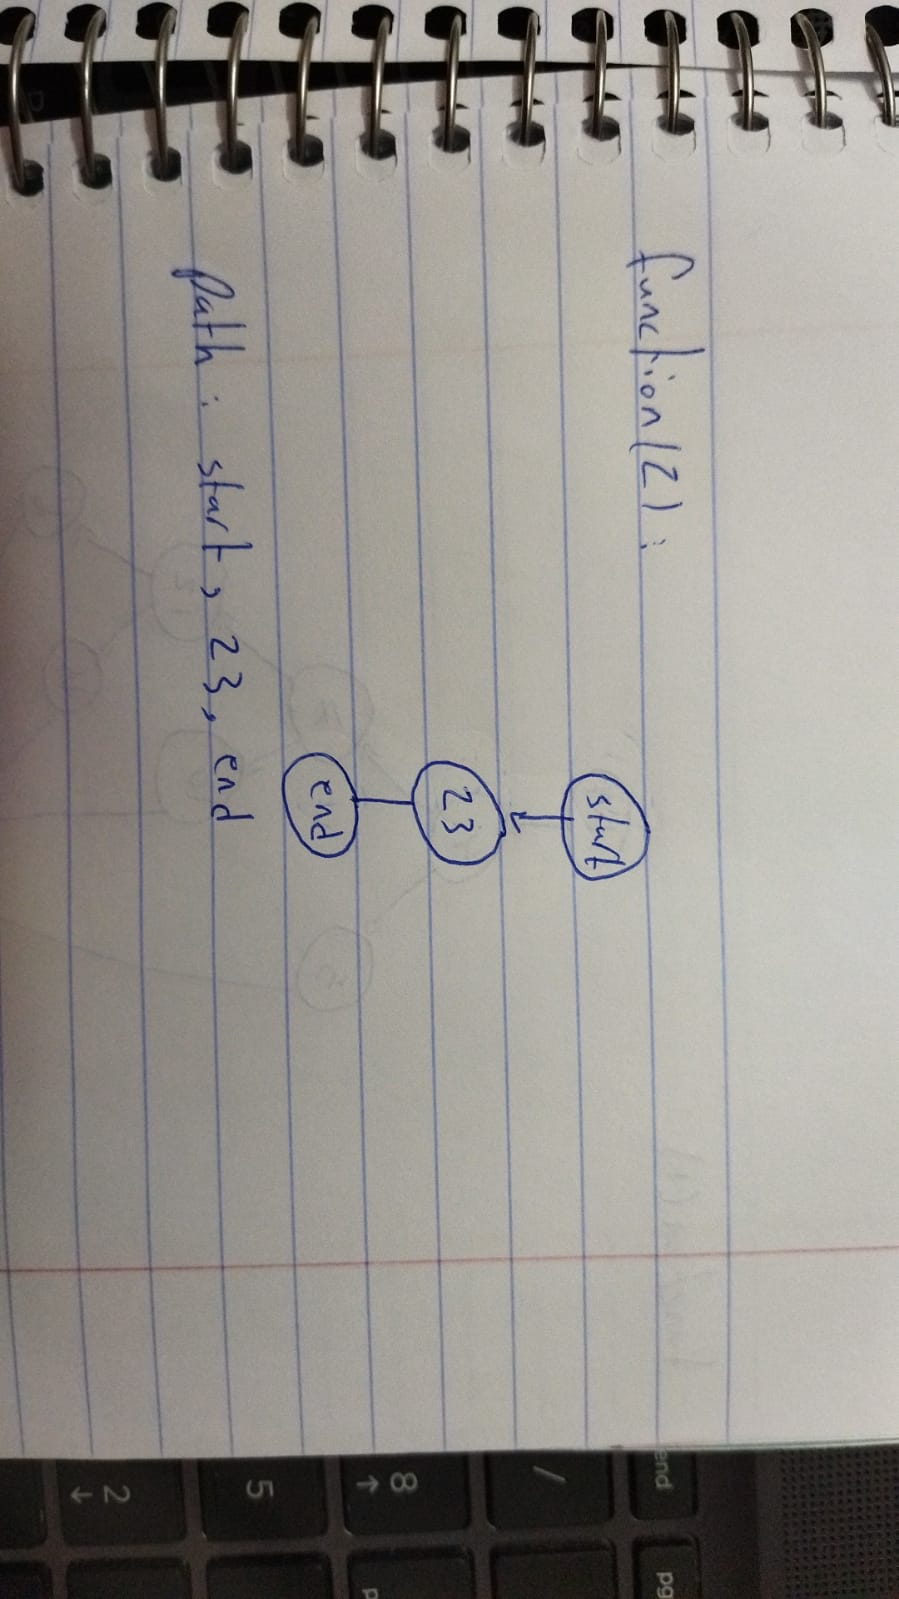 function(2):
start
23
end
Path: start, 23, end
end
pg
/
8
5
2